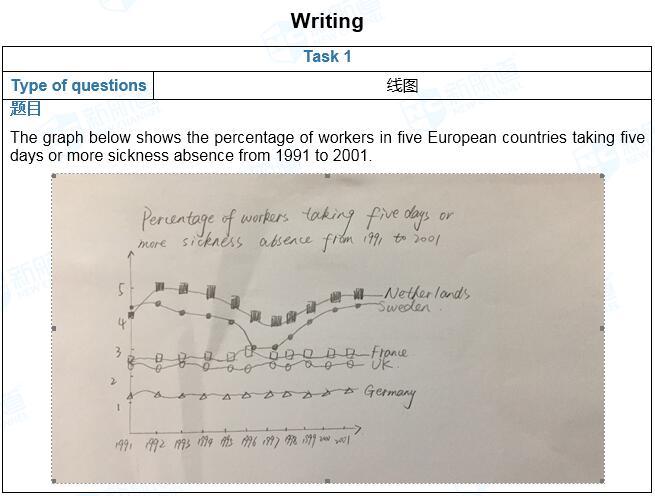 Writing
Task 1
Type of questions 线图
题目
The graph below shows the percentage of workers in five European countries taking five
days or more sickness absence from 1991 to 2001.
Percentage of workers taking five days or
more sickness absence from 1991 to 2001
5
4
3
2
1
Netherlands
Sweden.
France
UK.
Germany
1991 1992 1993 1994 1995 1996 1997 1998 1999 2000 2001